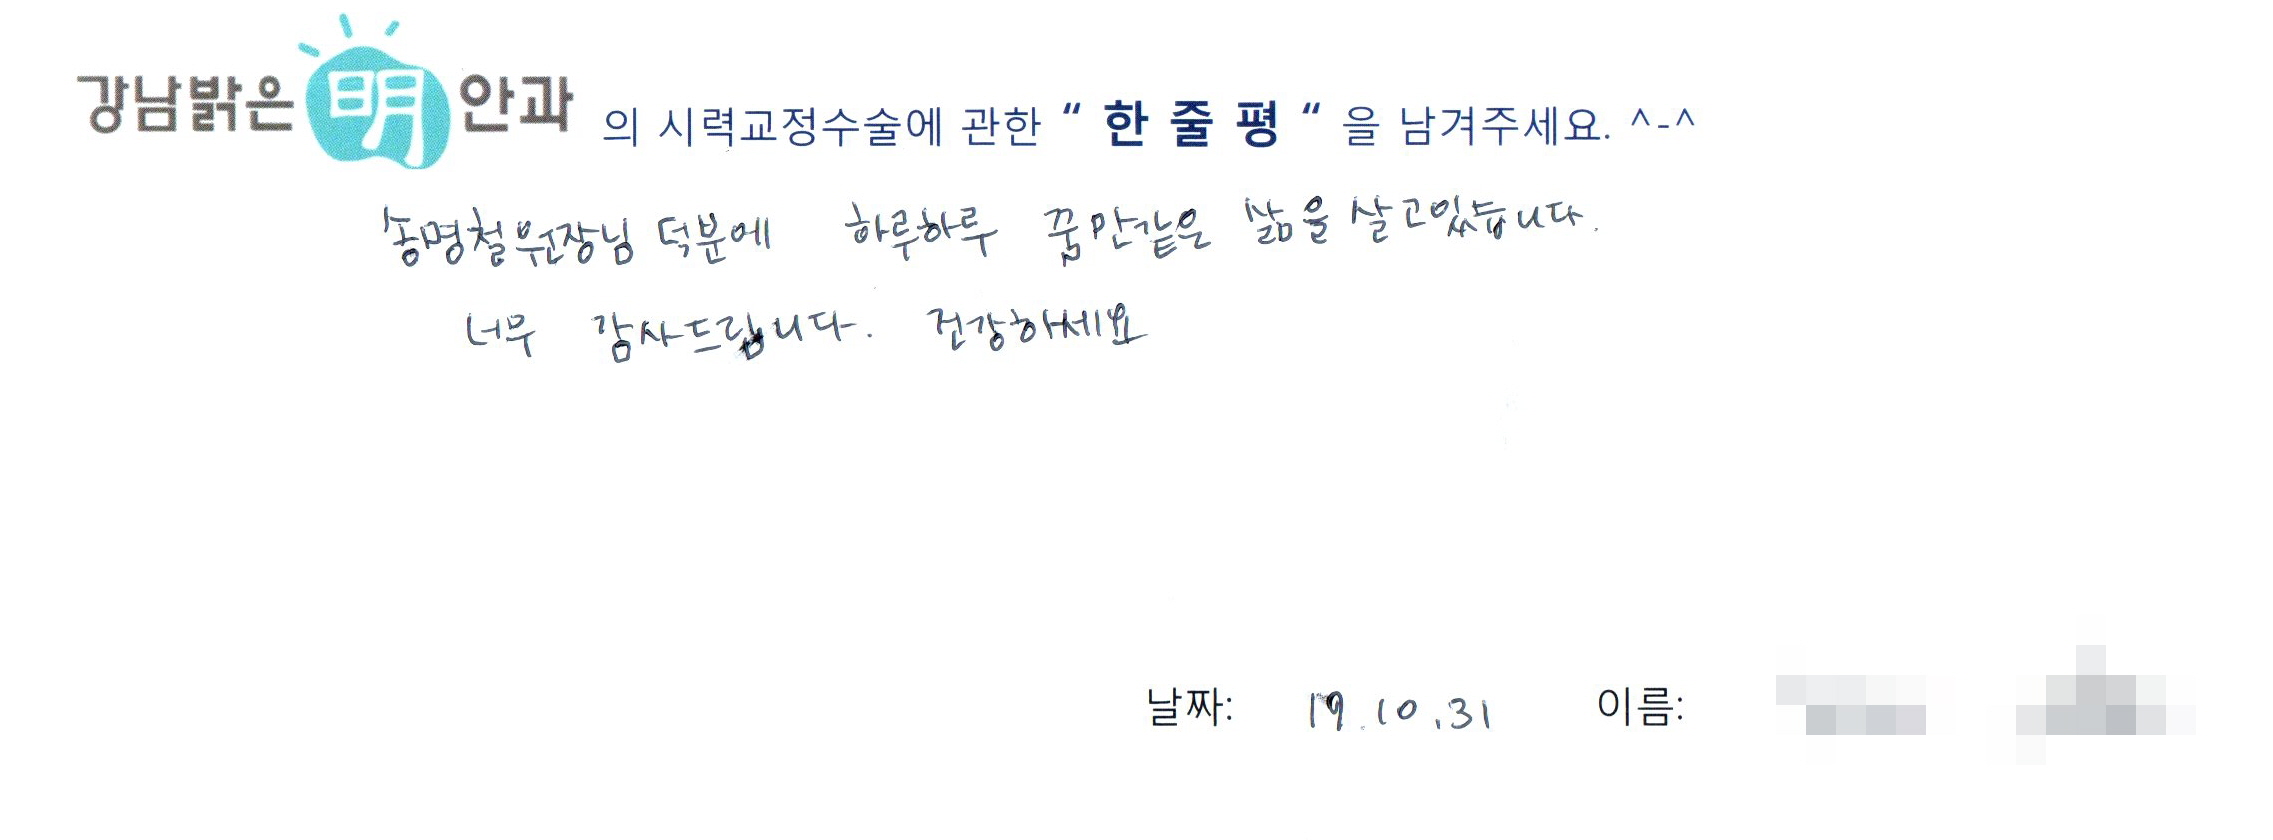 강남밝은明안과 의 시력교정수술에 관한 “ 한 줄 평 “ 을 남겨주세요. ^-^
송명철원장님 덕분에 하루하루 꿈만같은 삶을 살고있습니다.
너무 감사드립니다. 건강하세요
날짜: 19.10.31 이름: